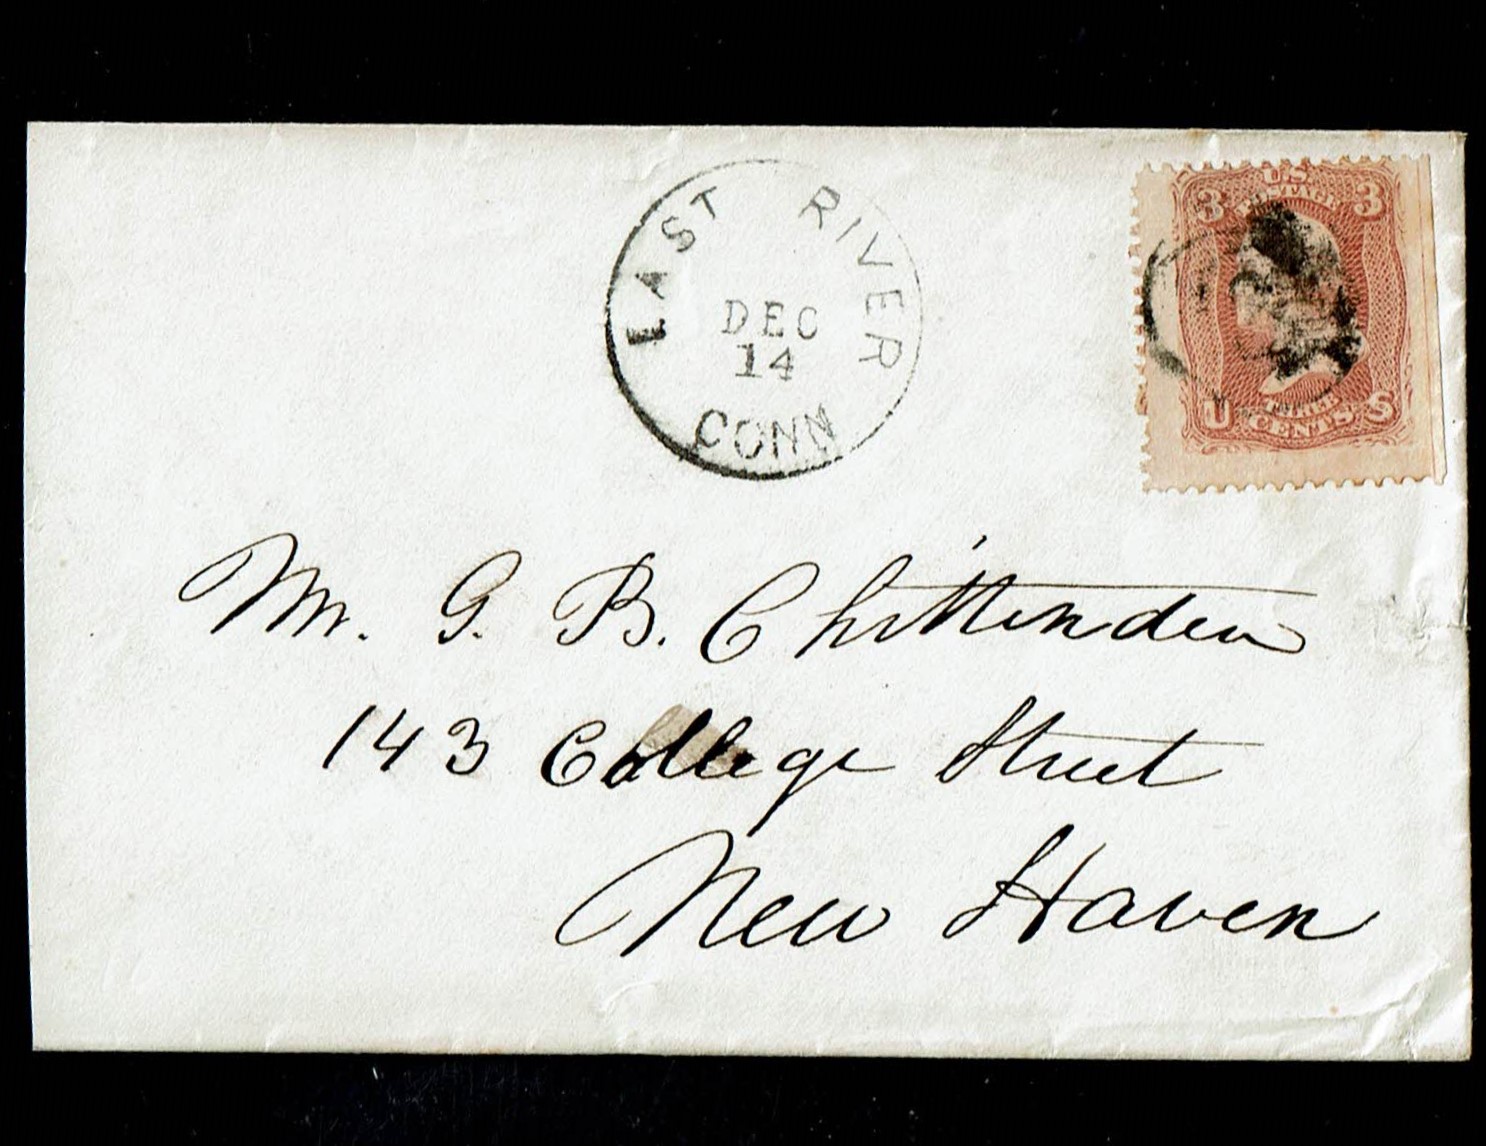 EAST RIVER
DEC
14
CONN
US
POSTAGE
3 3
U THREE S
CENTS
Mr. G. B. Chittenden
143 College Street
New Haven